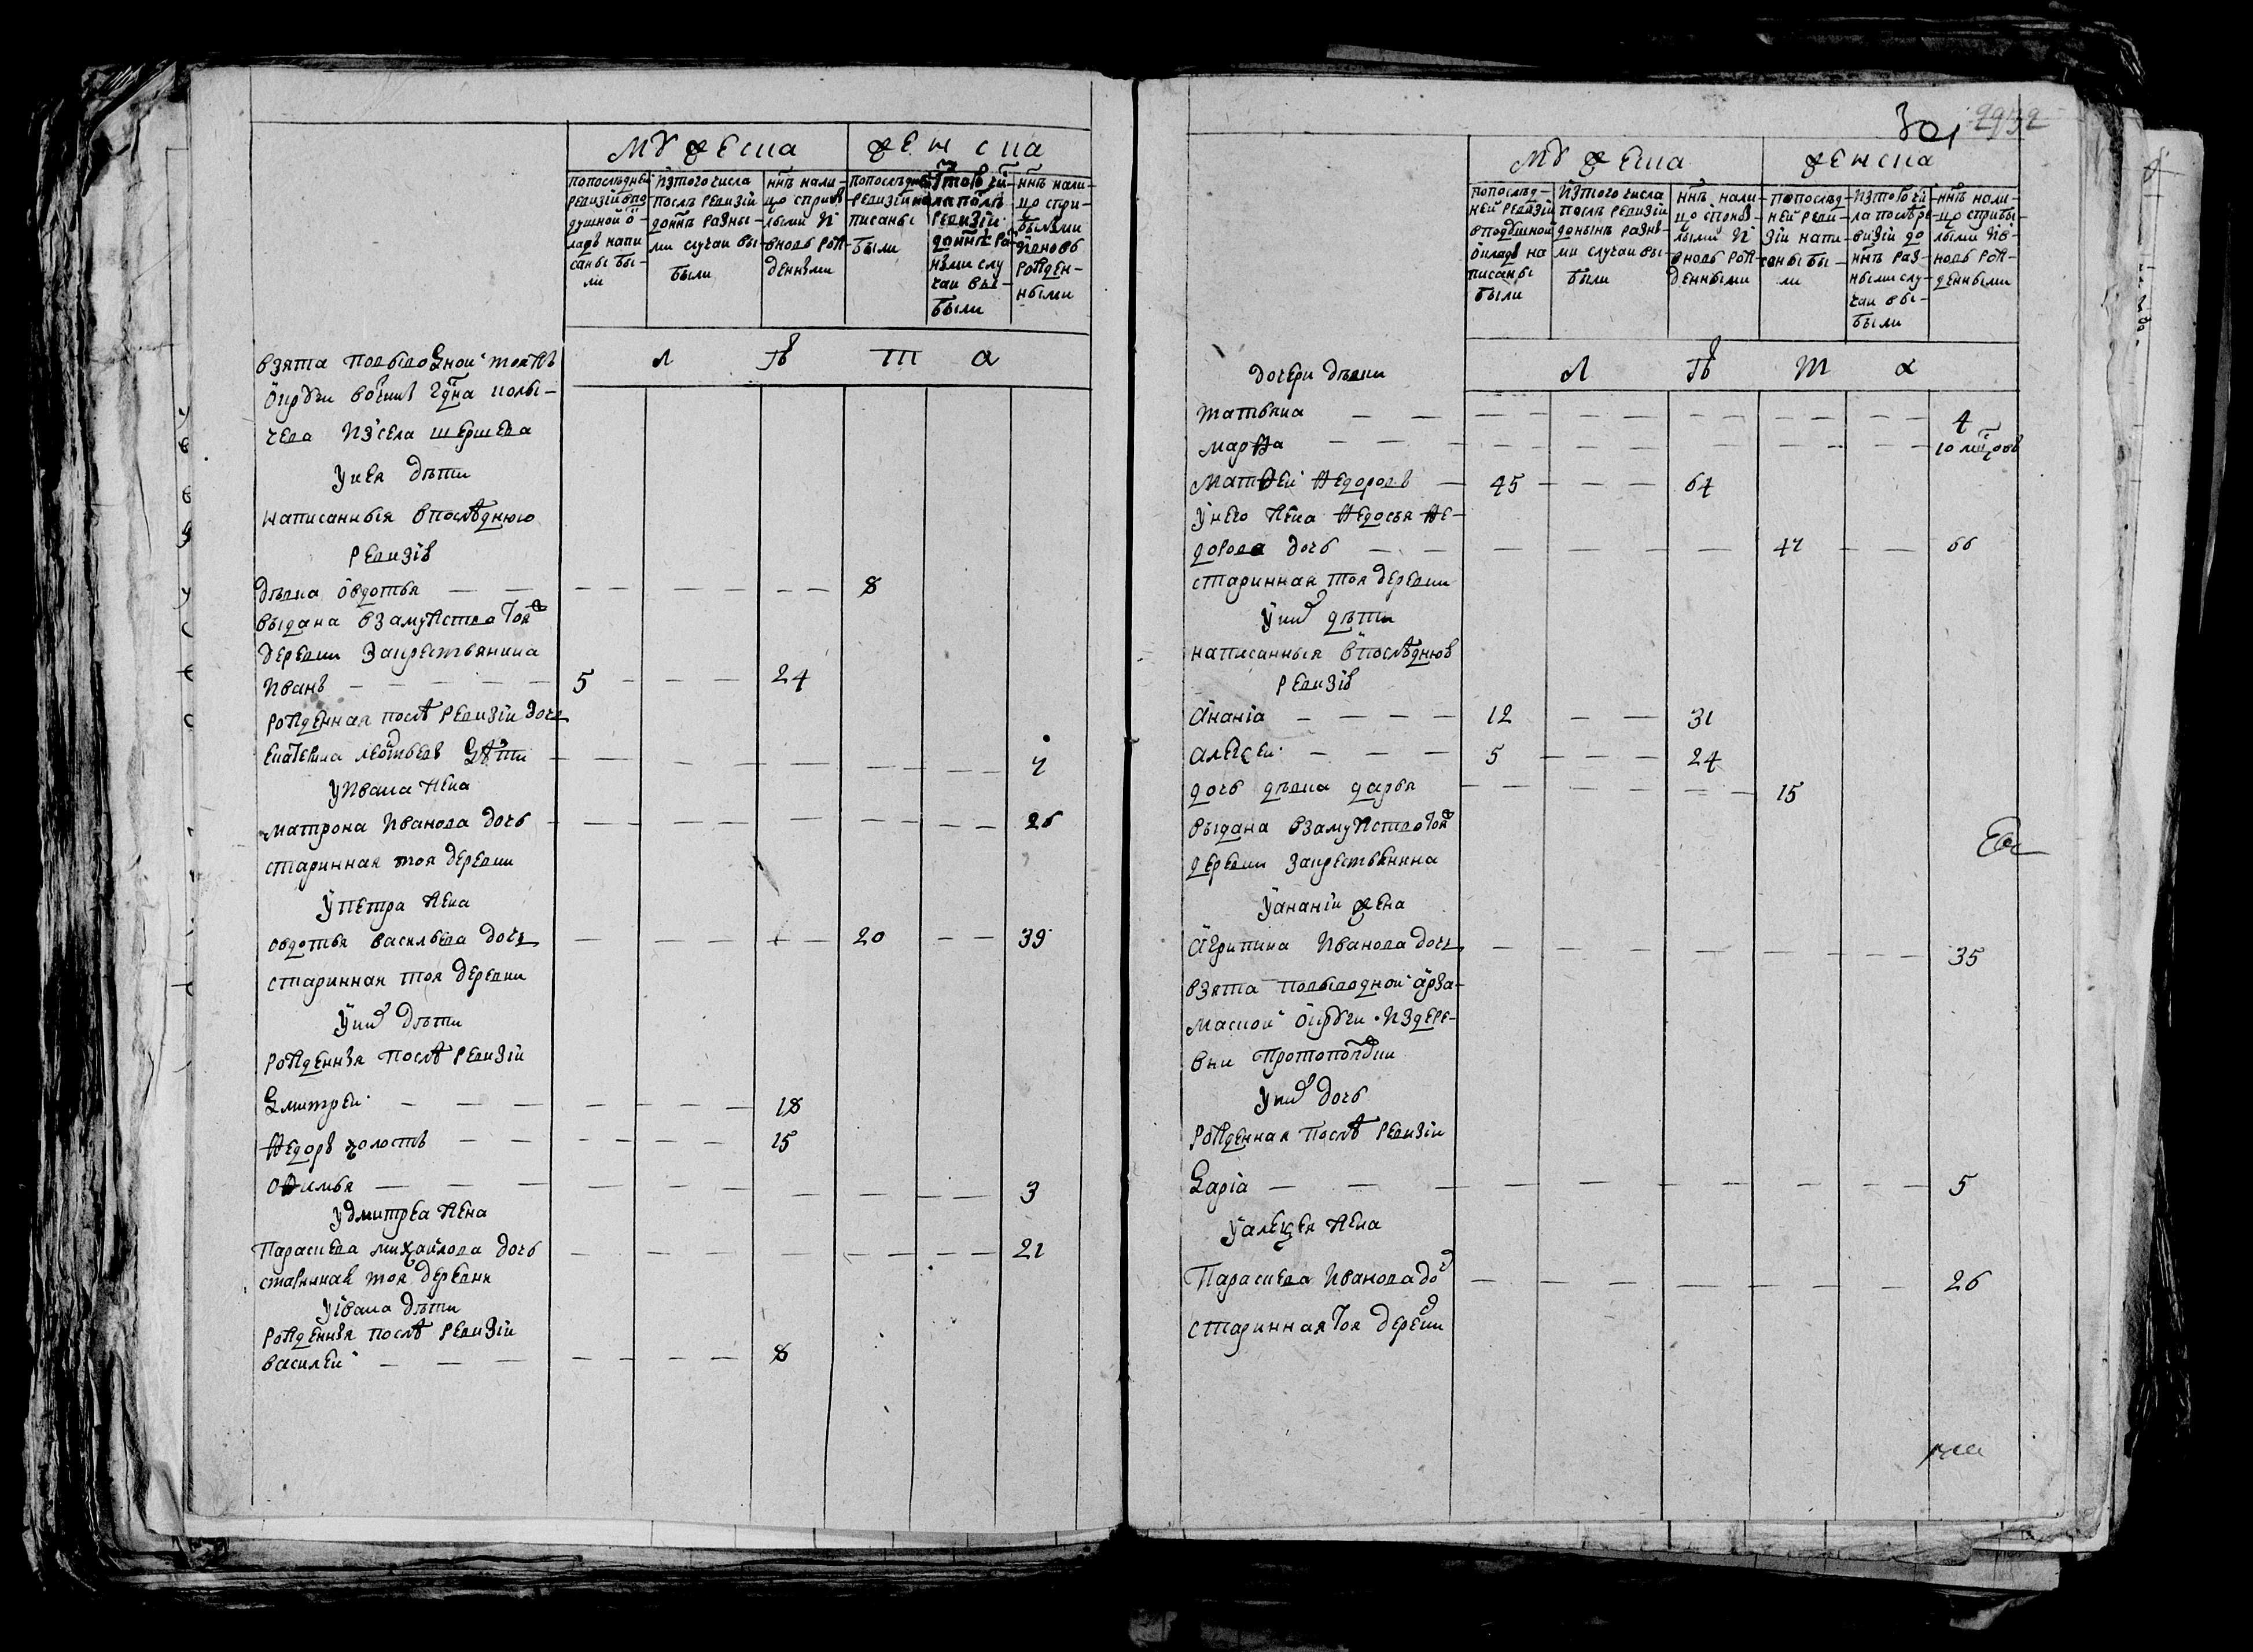 мужеска
женска
попоследней
ревизии впо
душной о-
кладъ напи
саны бы-
ли
изтого числа
послъ ревизии
донынъ разны-
ми случаи вы-
были
ннъ нали-
цо сприб
лыми и
вновь рож-
денными
попоследней
ревизии на
писаны
были
изтого чи-
ла послъ
ревизии
донынъ ра
ными слу
чаи вы-
были
ннъ нали-
цо спри-
былыми
ивновь
рожден-
ными
лѣта
взятаповыводной тояжъ
округи вочины гдна
чева изсела шершева
унея дѣти
написанныя впослѣднюю
ревизiю
дѣвка овдотья — — 8
выдана взамужство тояж
деревни закрестьянина
Иванъ — 5 — 24
рожденная послѣ ревизiи дочь
Екатерина леонтьева
уивана жена
матрона Иванова дочь — 26
старинная тоя деревни
упетра жена
овдотья васильева дочь — 20 — 39
старинная тоя деревни
уних дѣти
рожденныя послѣ ревизiи
Дмитрей — 18
Ѳедоръ холостъ — 15
Офимья — 3
удмитрея жена
Парасковья михайлова дочь — 21
старинная тоя деревни
уивана дѣти
рожденныя послѣ ревизiи
василей — 8
301
мужеска
женска
попослѣд-
ней ревизiи
вподушной
окладъ на
писаны
были
изтого числа
послѣ ревизiи
донынѣ разны-
ми случаи вы-
были
ннѣ нали-
цо сприбы-
лыми и
вновь рож-
денными
попослѣд-
ней реви-
зiи напи-
саны бы-
ли
изтого чи-
ла послѣ ре-
визiи до
ннѣ раз-
ными слу-
чаи вы-
были
ннѣ нали-
цо сприбы-
лыми ив-
новь рож-
денными
лѣта
дочери дѣвки
татьяна — 4
марѳа — 10
Матѳей Ѳедоровъ — 45 — 64
унего жена Ѳедосья Ѳе-
дорова дочь — 47 — 66
старинная тоя деревни
уних дѣти
написанныя впослѣднюю
ревизiю
Ананiа — 12 — 31
алексей — 5 — 24
дочь дѣвка дарья — 15
выдана взамужство тояж
деревни закрестьянина
уананiи жена
Агрипина Иванова дочь — 35
взята повыводной арза-
маской округи издере-
вни протопоповки
уних дочь
рожденная послѣ ревизiи
Дарiа — 5
уалексея жена
Парасковья Иванова доч — 26
старинная тоя деревни